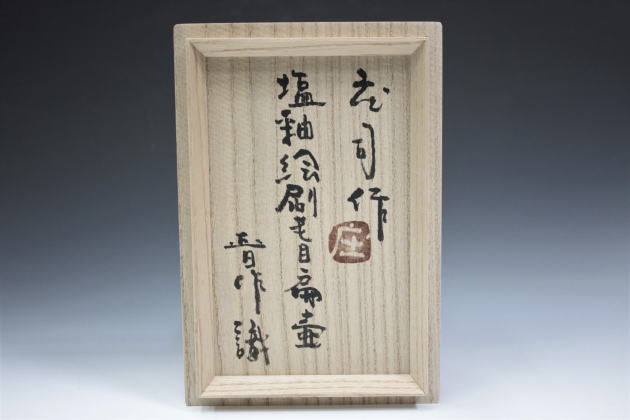 庄司作
庄
塩釉絵刷毛目扁壷
晋作識